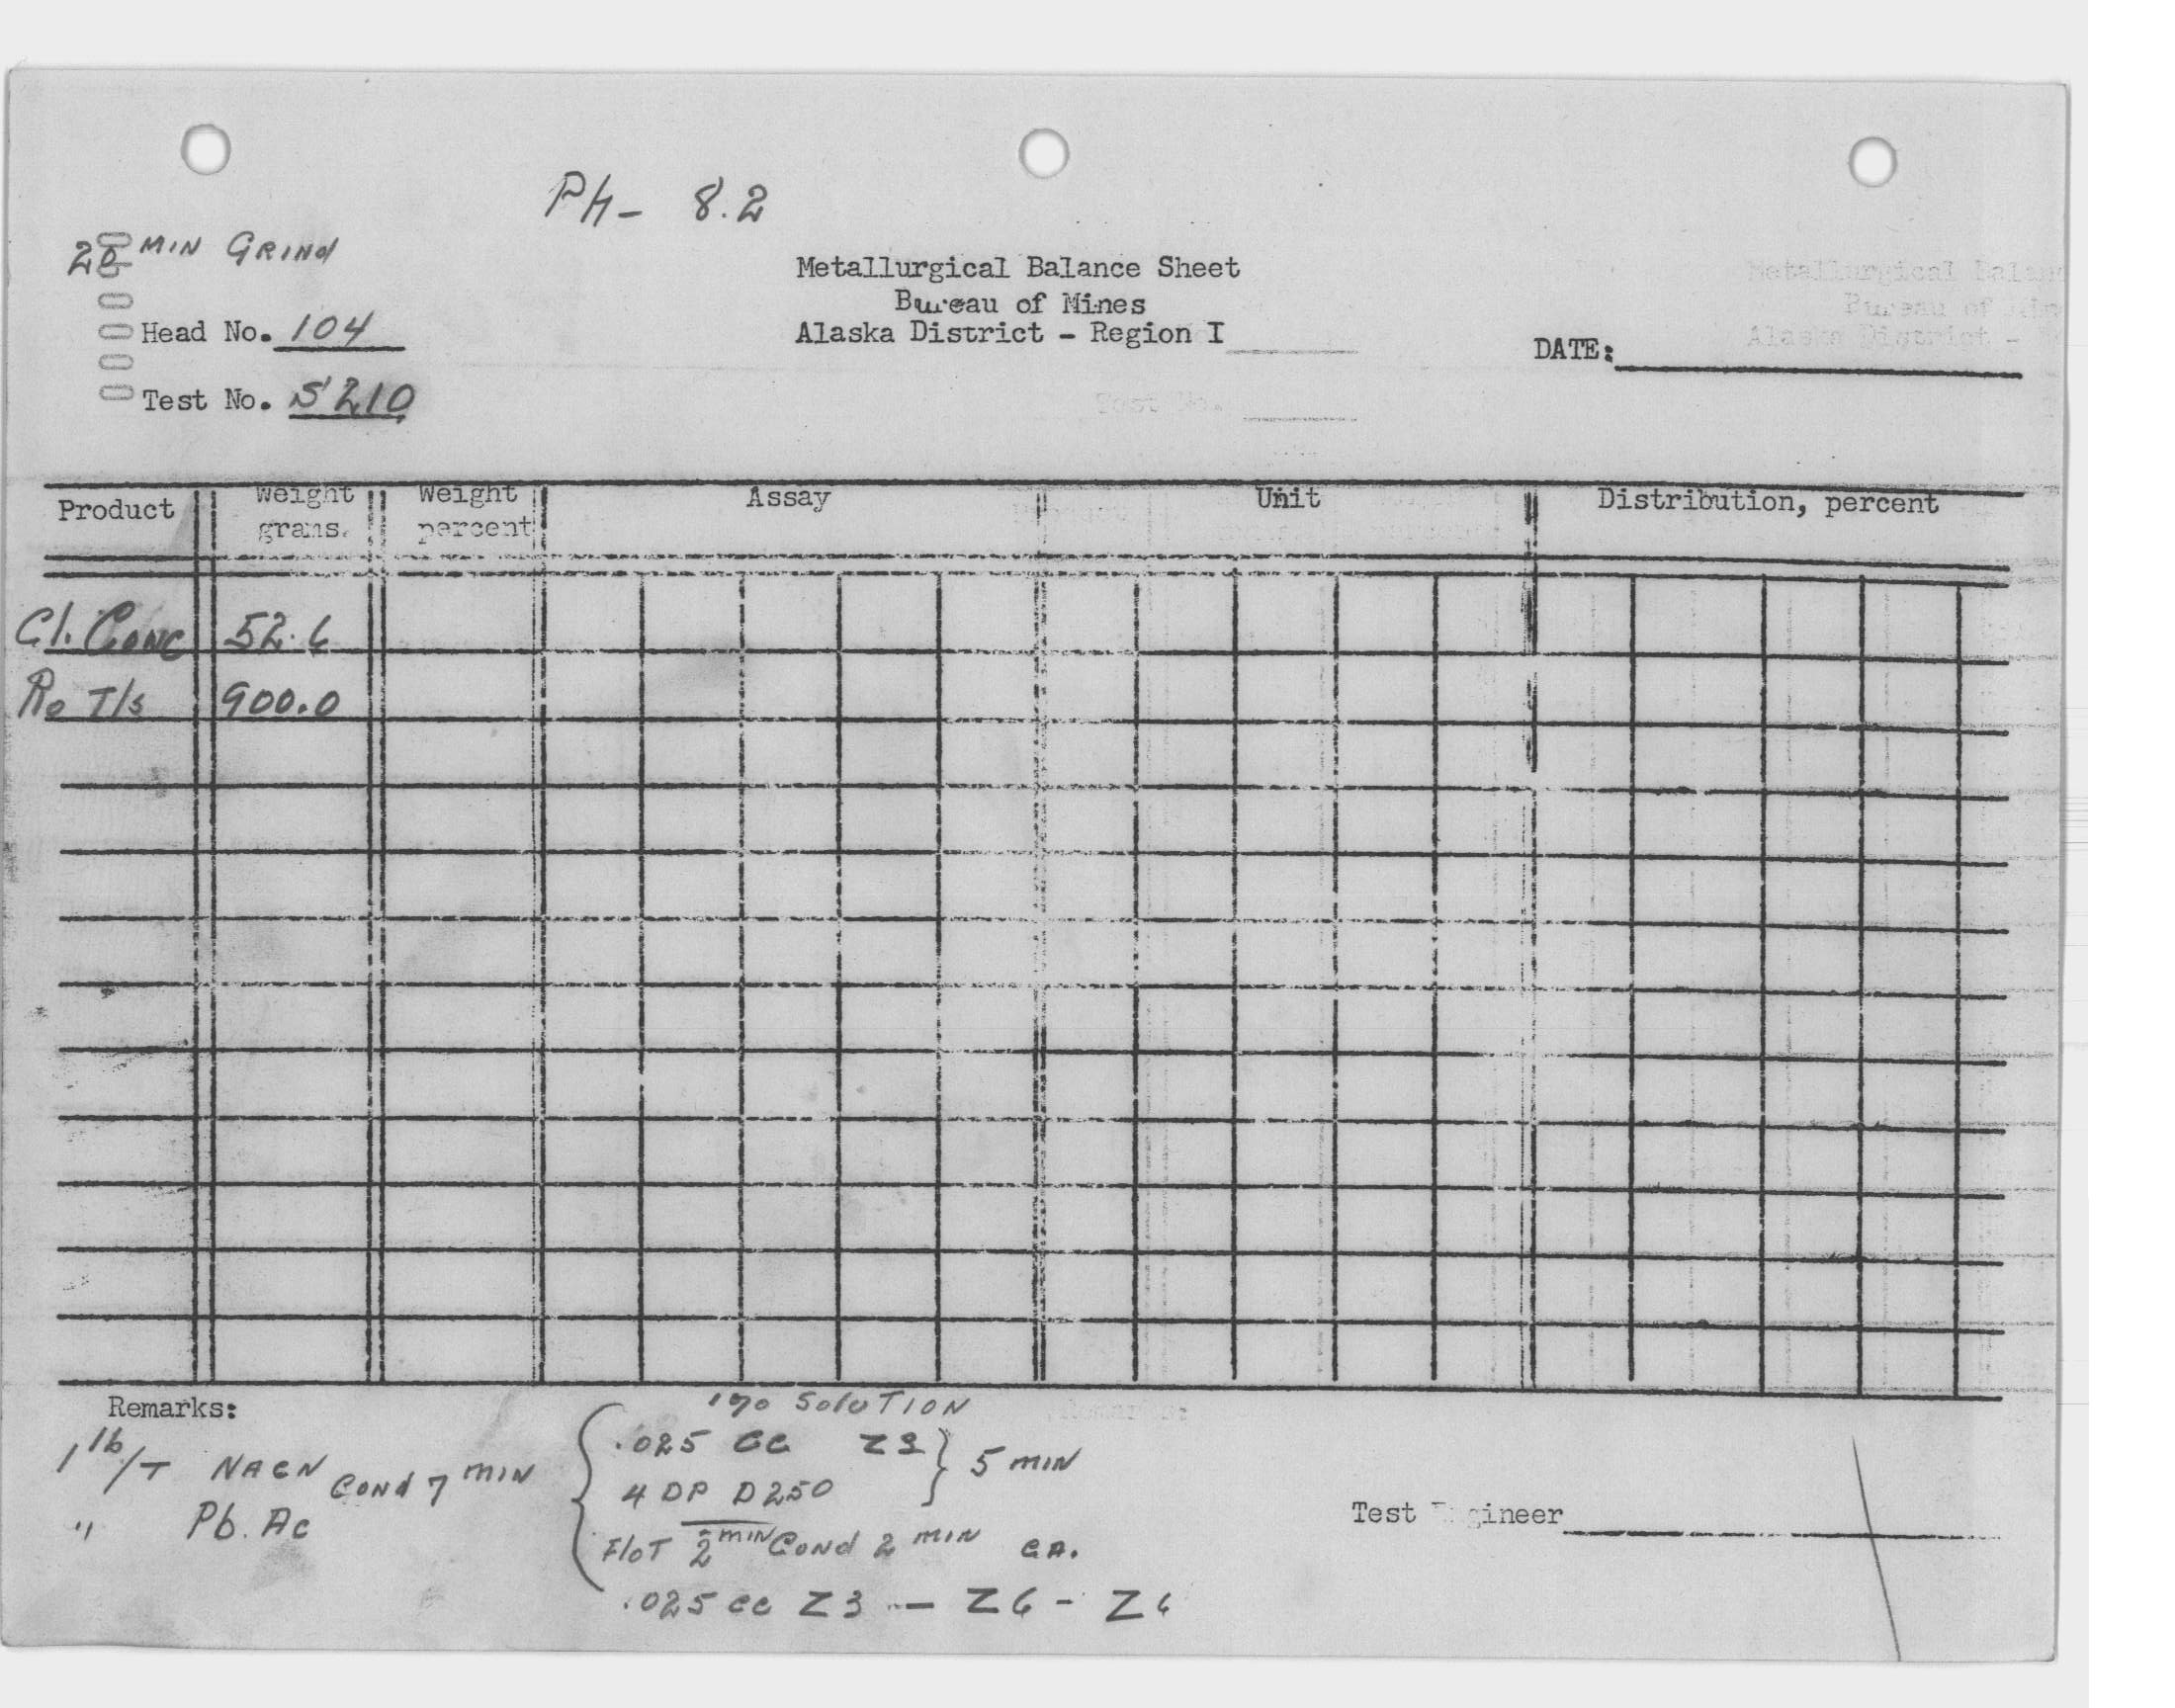 Ph- 8.2
20 MIN GRINd
Metallurgical Balance Sheet
Bureau of Mines
Alaska District - Region I
Head No. 104
DATE:
Test No. S210
Product Weight grams. Weight percent Assay Unit Distribution, percent
Cl. CONC 52.6
Ro T/s 900.0
Remarks:
1% SoluTION
1 lb/T NACN CONd 7 MIN
.025 CC Z3 } 5 MIN
4 DP D250
" Pb. Ac
Test Engineer
FloT 2 MIN CONd 2 MIN EA.
.025 CC Z3 - Z6 - Z6